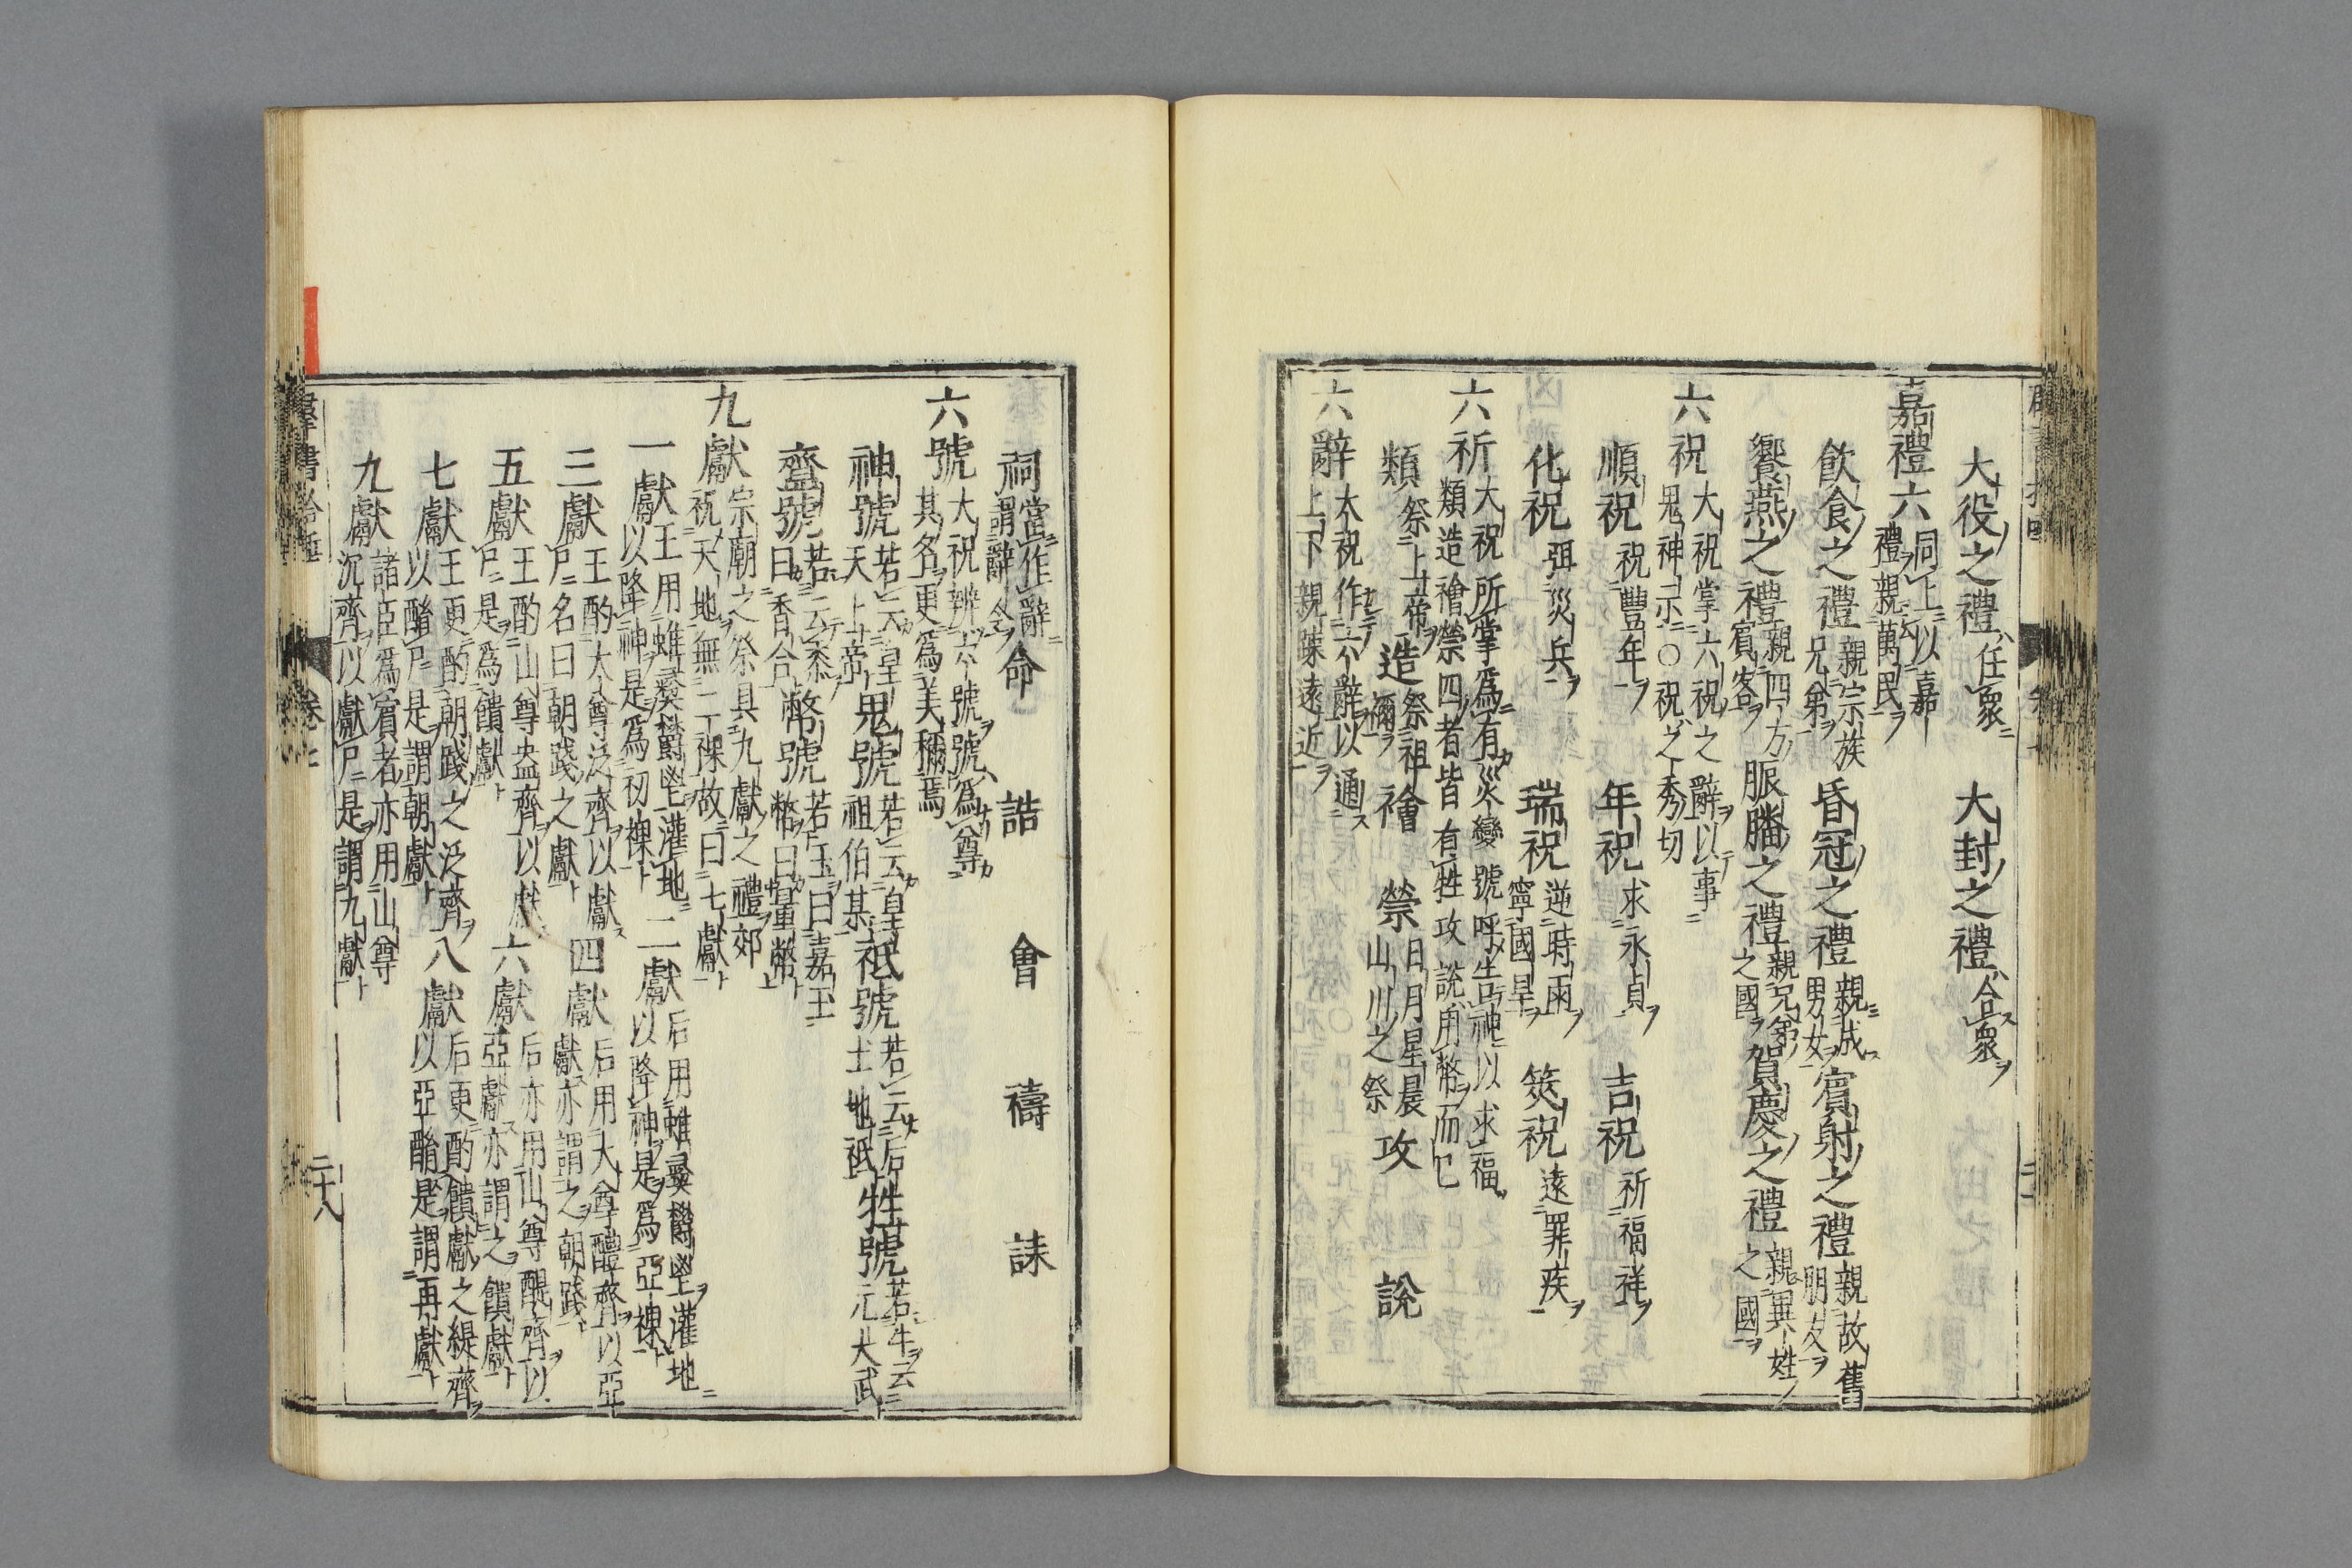 大役之禮任衆　大封之禮合衆
嘉禮六同上以嘉禮親萬民
飲食之禮親宗族兄弟　昏冠之禮親成男女　賓射之禮親故舊朋友
饗燕之禮親四方賓客　脤膰之禮親兄弟之國　賀慶之禮親異姓之國
六祝大祝掌六祝之辭以事鬼神示○祝之秀切
順祝祝豐年　年祝求永貞　吉祝祈福祥
化祝弭災兵　瑞祝逆時雨寧國旱　筴祝遠罪疾
六祈大祝所掌爲有災變號呼告神以求福類造禬禜四者皆有牲攻說用幣而已
類祭上帝　造祭祖禰　禬　禜日月星晨山川之祭　攻　說
六辭太祝作六辭以通上下親疎遠近
祠當作辭謂辭令　命　誥　會　禱　誄
六號大祝辨六號號爲尊其名更爲美稱焉
神號若云皇天上帝　鬼號若云皇祖伯某　祗號若云后土地祇　牲號若牛云元大武
齍號若云黍曰香合　幣號若玉曰嘉玉幣曰量幣
九獻宗廟之祭具九獻之禮郊祝天地無二祼故曰七獻
一獻王用蜼彛欝鬯灌地以降神是爲初祼　二獻后用蜼彛欝鬯灌地以降神是爲亞祼
三獻王酌大尊泛齊以獻尸名曰朝踐之獻　四獻后用大尊醴齊以亞獻亦謂之朝踐
五獻王酌山尊盎齊以獻尸是爲饋獻　六獻后亦用山尊醍齊以亞獻亦謂之饋獻
七獻王更酌朝踐之泛齊以酳尸是謂朝獻　八獻后更酌饋獻之緹齊以亞酳是謂再獻
九獻諸臣爲賓者亦用山尊沉齊以獻尸是謂九獻
卷七
二十八